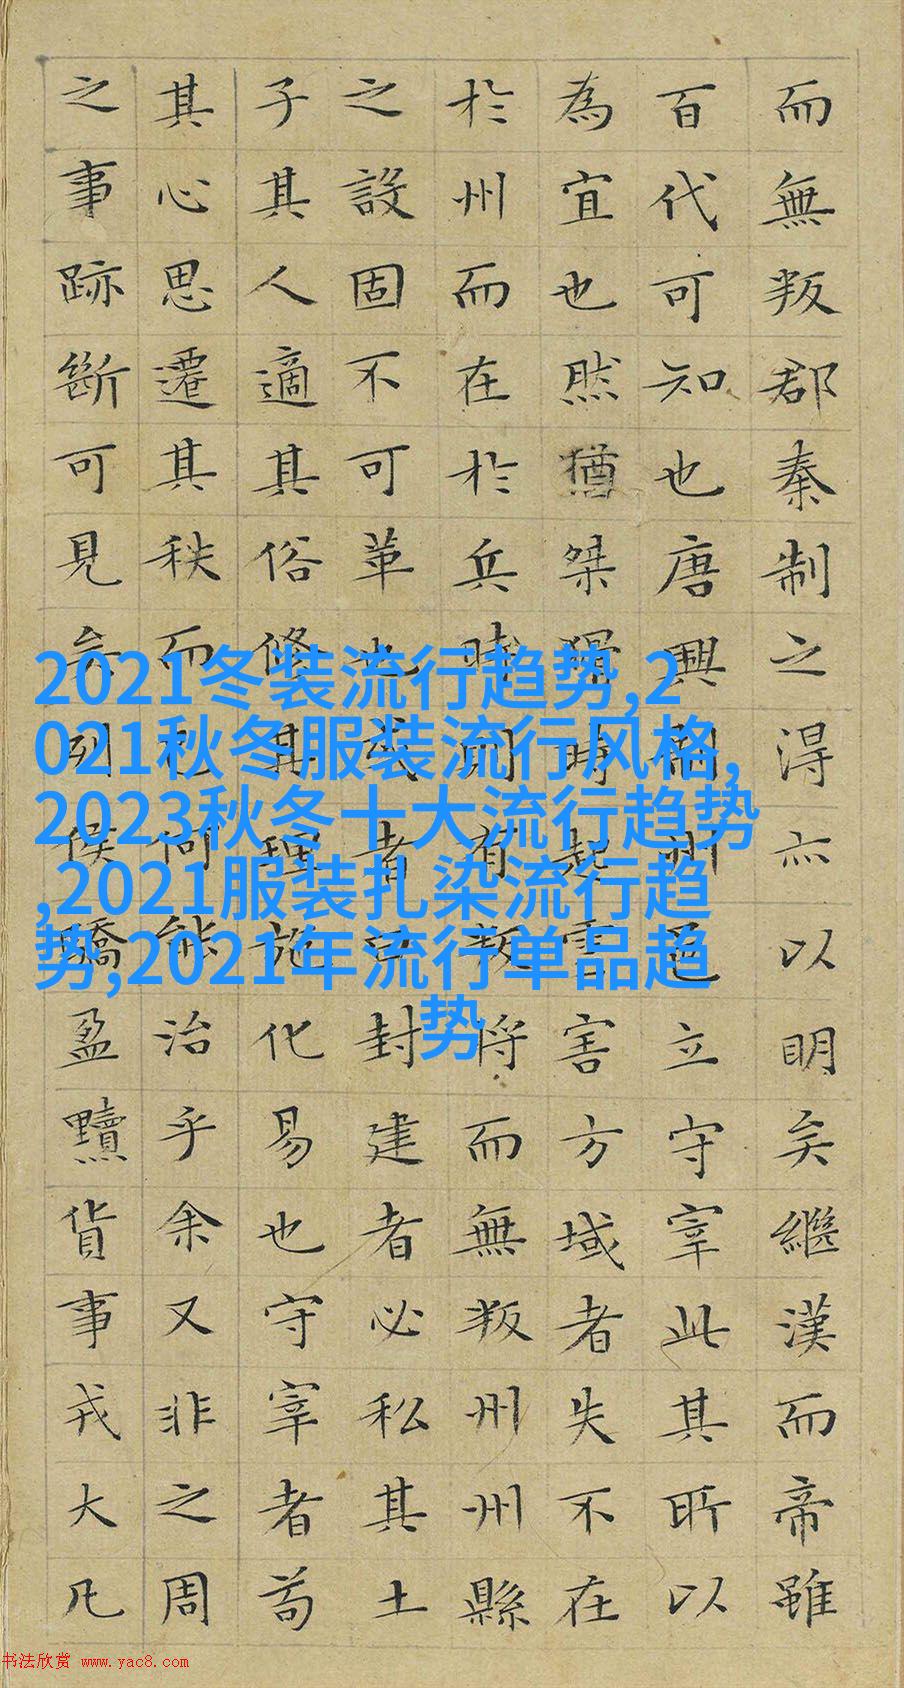 而無叛郡秦制之得亦以明矣繼漢而帝雖
百代可知也唐興制州邑立守宰此其所以
為宜也然猶桀猾時起虐害方域者失不在
於州而在於兵時則有叛將而無叛州州縣
之設固不可革也或者曰封建者必私其土
子其人適其俗脩其理施化易也守宰者苟
其心思遷其秩而已何能治乎余又非之周
之事跡斷可見矣列侯驕盈黷貨事戎大凡
2021冬装流行趋势,2
021秋冬服装流行风格,
2023秋冬十大流行趋势
,2021服装扎染流行趋
势,2021年流行单品趋
势
书法欣赏 www.yac8.com